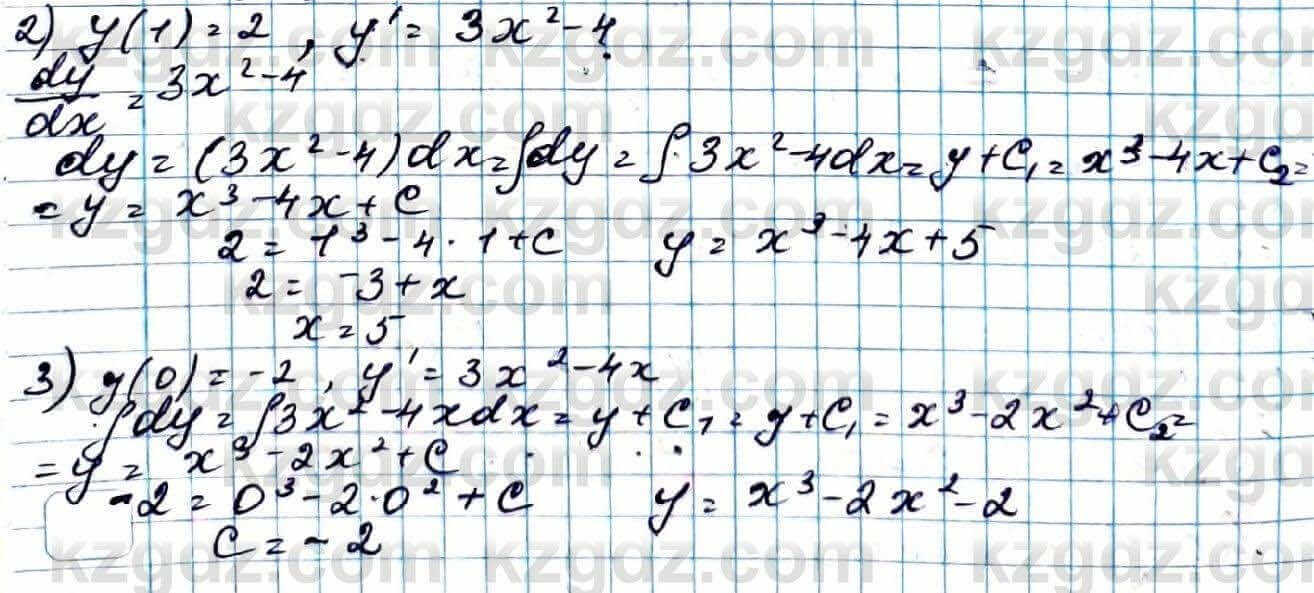 2) y(1) = 2 , y' = 3x² - 4
dy/dx = 3x² - 4
dy = (3x² - 4) dx = ∫dy = ∫ 3x² - 4dx = y + C₁ = x³ - 4x + C₂ =
= y = x³ - 4x + C
2 = 1³ - 4 · 1 + C y = x³ - 4x + 5
2 = -3 + x
x = 5
3) y(0) = -2 , y' = 3x² - 4x
∫dy = ∫3x² - 4xdx = y + C₁ = y + C₁ = x³ - 2x² + C₂ =
= y = x³ - 2x² + C
-2 = 0³ - 2 · 0² + C y = x³ - 2x² - 2
C = -2
kzgdz.com